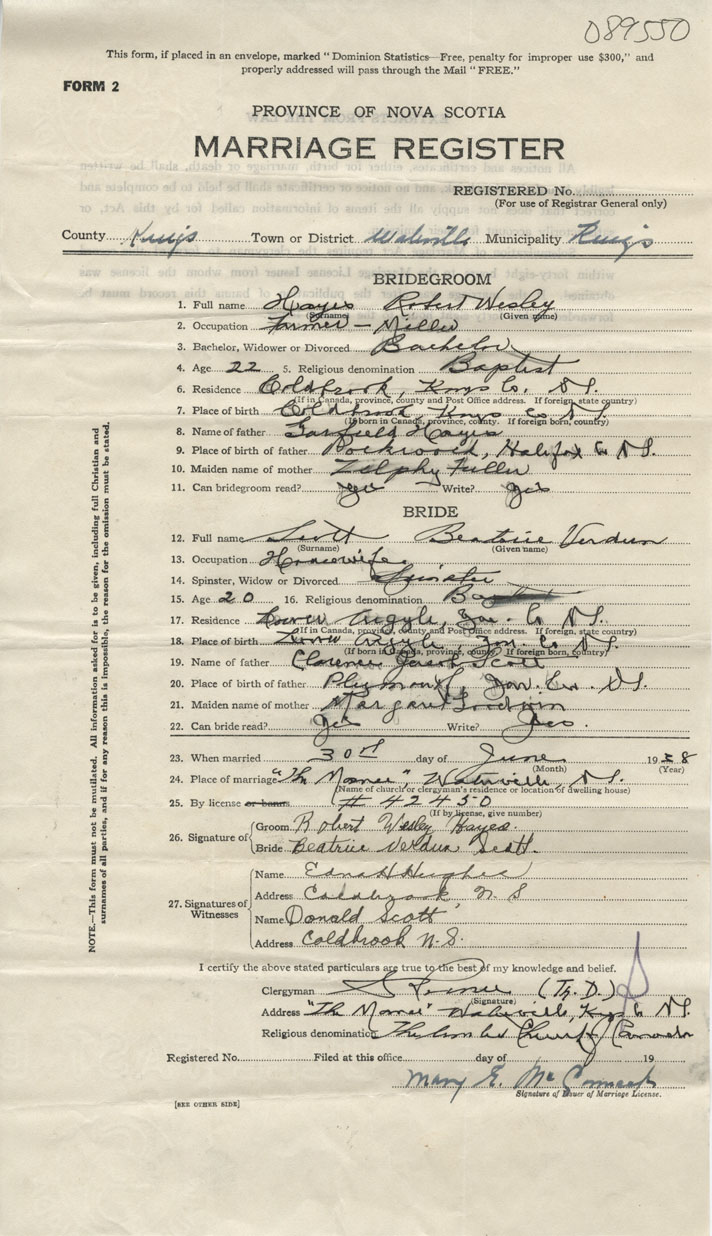 089550
This form, if placed in an envelope, marked "Dominion Statistics—Free, penalty for improper use $300," and
properly addressed will pass through the Mail "FREE."
FORM 2
PROVINCE OF NOVA SCOTIA
MARRIAGE REGISTER
REGISTERED No.
(For use of Registrar General only)
County Kings Town or District Waterville Municipality Kings
BRIDEGROOM
1. Full name Hayes Robert Wesley
(Surname) (Given name)
2. Occupation Farmer — Miller
3. Bachelor, Widower or Divorced Bachelor
4. Age 22 5. Religious denomination Baptist
6. Residence Coldbrook, Kings Co. N.S.
(If in Canada, province, county and Post Office address. If foreign, state country)
7. Place of birth Coldbrook, Kings Co N.S.
(If born in Canada, province, county. If foreign born, country)
8. Name of father Garfield Hayes
9. Place of birth of father Rockwood, Halifax Co N.S.
10. Maiden name of mother Zilphy Fuller
11. Can bridegroom read? yes Write? yes
BRIDE
12. Full name Scott Beatrice Verdun
(Surname) (Given name)
13. Occupation Housewife
14. Spinster, Widow or Divorced Spinster
15. Age 20 16. Religious denomination Baptist
17. Residence Lower Argyle, Yar. Co N.S.
(If in Canada, province, county and Post Office address. If foreign, state country)
18. Place of birth Lower Argyle, Yar. Co N.S.
(If born in Canada, province, county. If foreign born, country)
19. Name of father Clarence Jacob Scott
20. Place of birth of father Plymouth, Yar. Co. N.S.
21. Maiden name of mother Margaret Goodwin
22. Can bride read? Yes Write? Yes.
23. When married 30th day of June 1938
(Month) (Year)
24. Place of marriage "The Manse", Waterville, N.S.
(Name of church or clergyman's residence or location of dwelling house)
25. By license or banns # 42450
(If by license, give number)
26. Signature of
Groom Robert Wesley Hayes.
Bride Beatrice Verdun Scott.
27. Signatures of Witnesses
Name Edna H Hughes
Address Coldbrook, N.S
Name Donald Scott
Address Coldbrook N.S.
I certify the above stated particulars are true to the best of my knowledge and belief.
Clergyman (Th. D.)
(Signature)
Address "The Manse" Waterville, Kings Co N.S.
Religious denomination The United Church of Canada
Registered No. Filed at this office day of 19
Mary E. McCormack
Signature of Issuer of Marriage License.
[SEE OTHER SIDE]
NOTE.—This form must not be mutilated. All information asked for is to be given, including full Christian and
surnames of all parties, and if for any reason this is impossible, the reason for the omission must be stated.